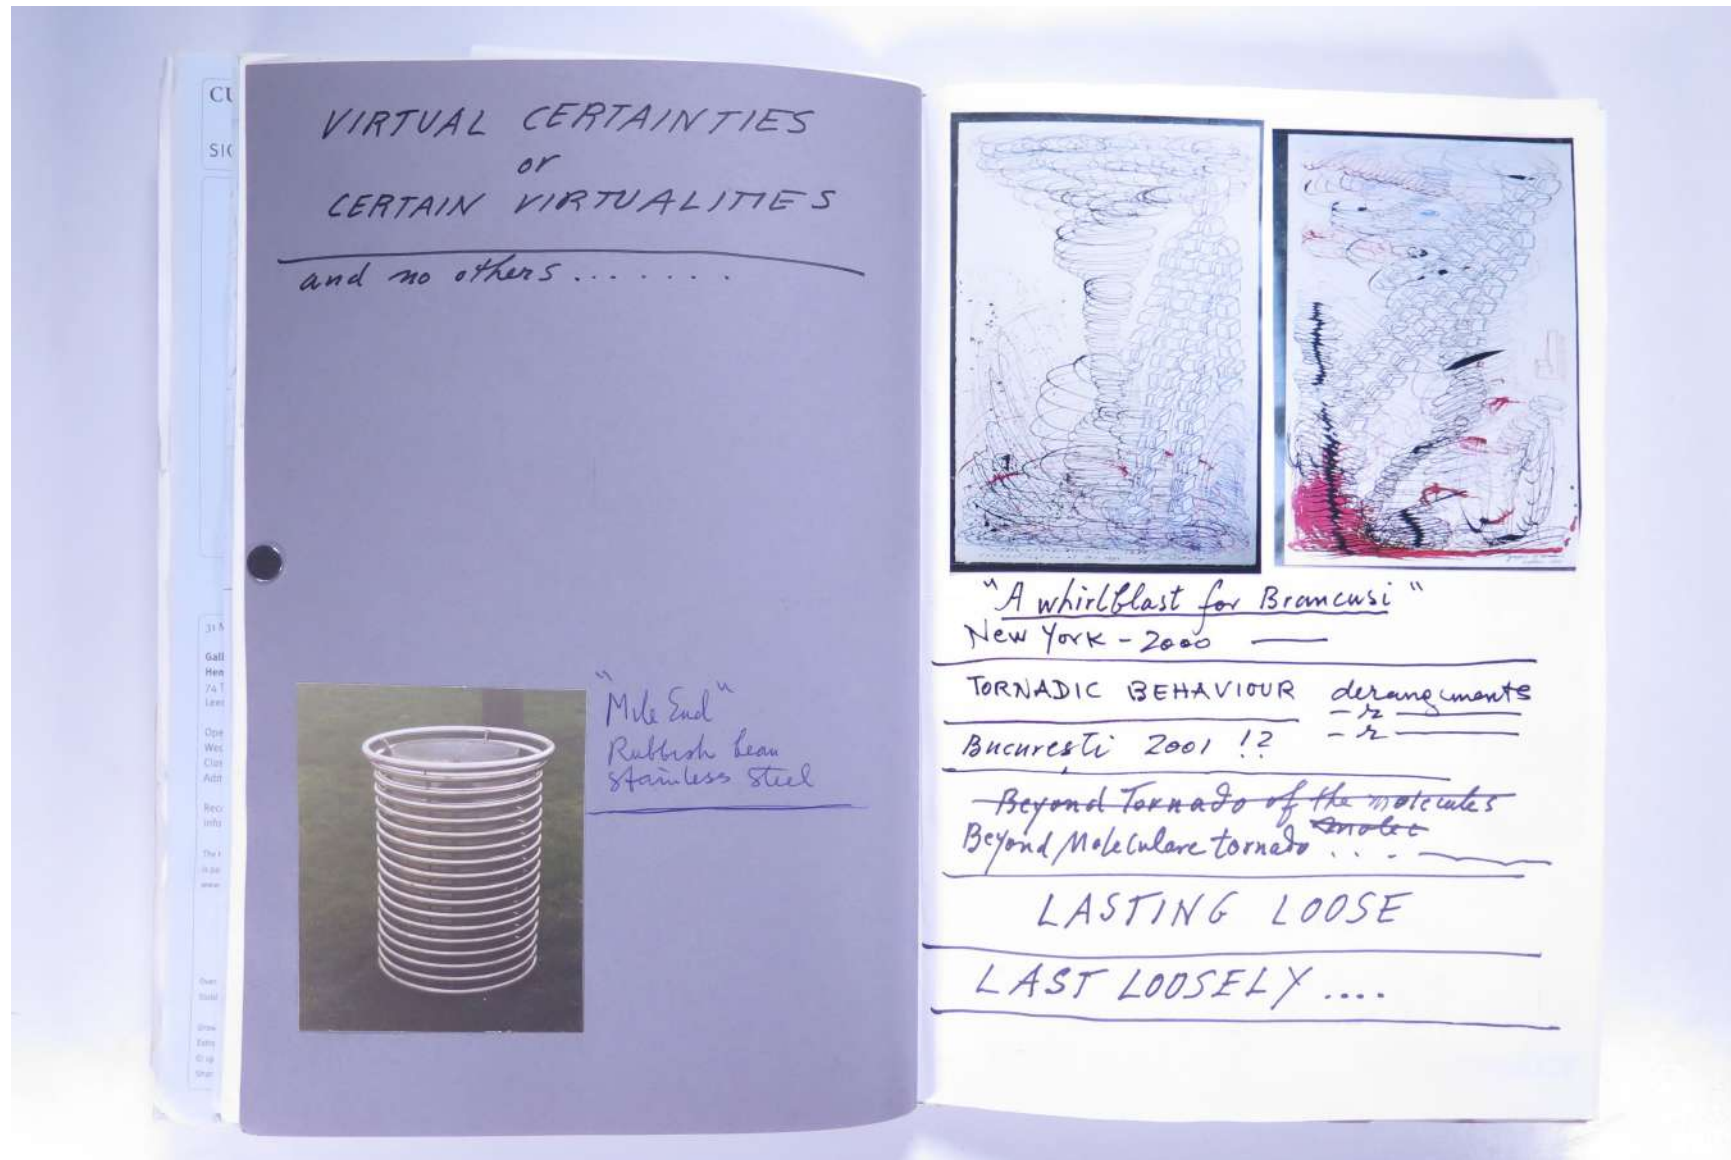 CU
SIG
31 M
Gall
Hen
74 T
Leed
Ope
Wes
Clos
Add
Reco
info
The H
is pa
Over
Draw
Extra
Shar
VIRTUAL CERTAINTIES
or
CERTAIN VIRTUALITIES
and no others .......
"Mile End"
Rubbish bean
stainless steel
"A whirlblast for Brancusi"
New York - 2000 —
TORNADIC BEHAVIOUR derangements
- r —
- r —
Bucuresti 2001 !?
Beyond Tornado of the molecules
molec
Beyond Moleculare tornado ....
LASTING LOOSE
LAST LOOSELY ....